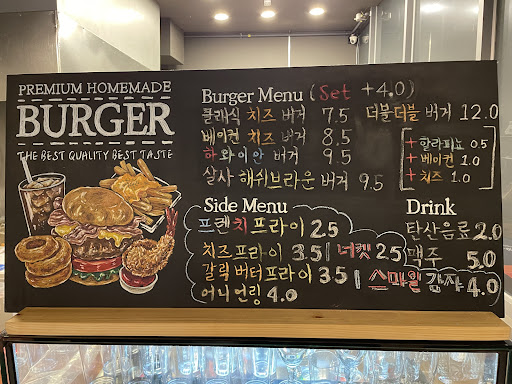 PREMIUM HOMEMADE
BURGER
THE BEST QUALITY BEST TASTE
Burger Menu (Set +4.0)
클래식 치즈 버거 7.5
베이컨 치즈 버거 8.5
하와이안 버거 9.5
살사 해쉬브라운 버거 9.5
더블더블 버거 12.0
+ 할라피뇨 0.5
+ 베이컨 1.0
+ 치즈 1.0
Side Menu
프렌치 프라이 2.5
치즈 프라이 3.5 | 너겟 2.5
갈릭 버터 프라이 3.5 | 스마일 감자 4.0
어니언링 4.0
Drink
탄산음료 2.0
맥주 5.0